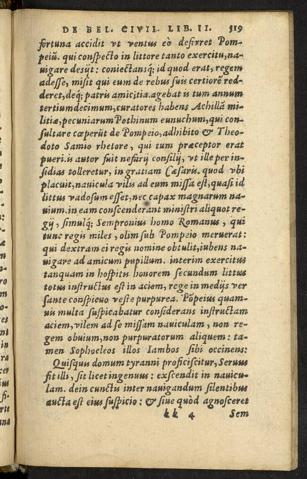 DE BEL. CIVIL. LIB. II. 519
fortuna accidit vt ventus eò deferret Pom-
peiũ. qui conspecto in littore tanto exercitu, na-
uigare desijt: coniectansq́; id quod erat, regem
adesse, misit qui eum de rebus suis certiorẽ red-
deret, deq́; patris amicitia. agebat is tum annum
tertiumdecimum, curatores habens Achillã mi-
litiæ, pecuniarum Pothinum eunuchum, qui con-
sultare cœperũt de Pompeio, adhibito & Theo-
doto Samio rhetore, qui tum præceptor erat
pueri. is autor fuit nefarij consilij, vt ille per in-
sidias tolleretur, in gratiam Cæsaris. quod vbi
placuit, nauicula vilis ad eum missa est, quasi id
littus vadosum esset, nec capax magnarum na-
uium. in eam conscenderant ministri aliquot re-
gij, simulq́; Sempronius homo Romanus, qui
tunc regis miles, olim sub Pompeio meruerat:
qui dextram ei regis nomine obtulit, iubens na-
uigare ad amicum pupillum. interim exercitus
tanquam in hospitis honorem secundum littus
totus instructus est in aciem, rege in medijs ver
sante conspicuo veste purpurea. Põpeius quam-
uis multa suspicabatur considerans instructam
aciem, vilem ad se missam nauiculam, non re-
gem obuium, non purpuratorum aliquem: ta-
men Sophocleos illos Iambos sibi occinens:
Quisquis domum tyranni proficiscitur, Seruus
fit illi, sit licet ingenuus: exscendit in nauicu-
lam. dein cunctis inter nauigandum silentibus
aucta est eius suspicio: & siue quòd agnosceret
kk 4 Sem